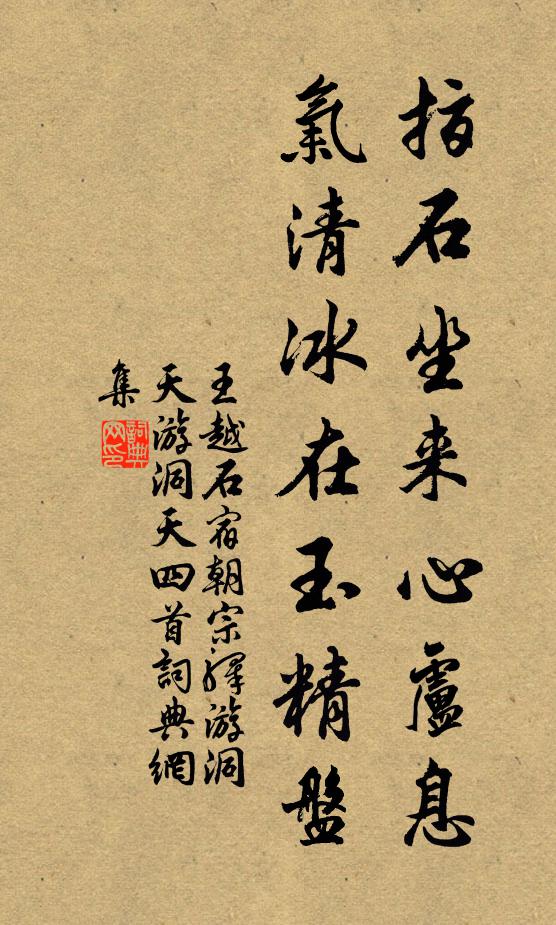 石坐来心盧息
氣清冰在玉精盤
王越石宿朝宗譯游洞
天游洞天四首詞典網
集
詞典
网印